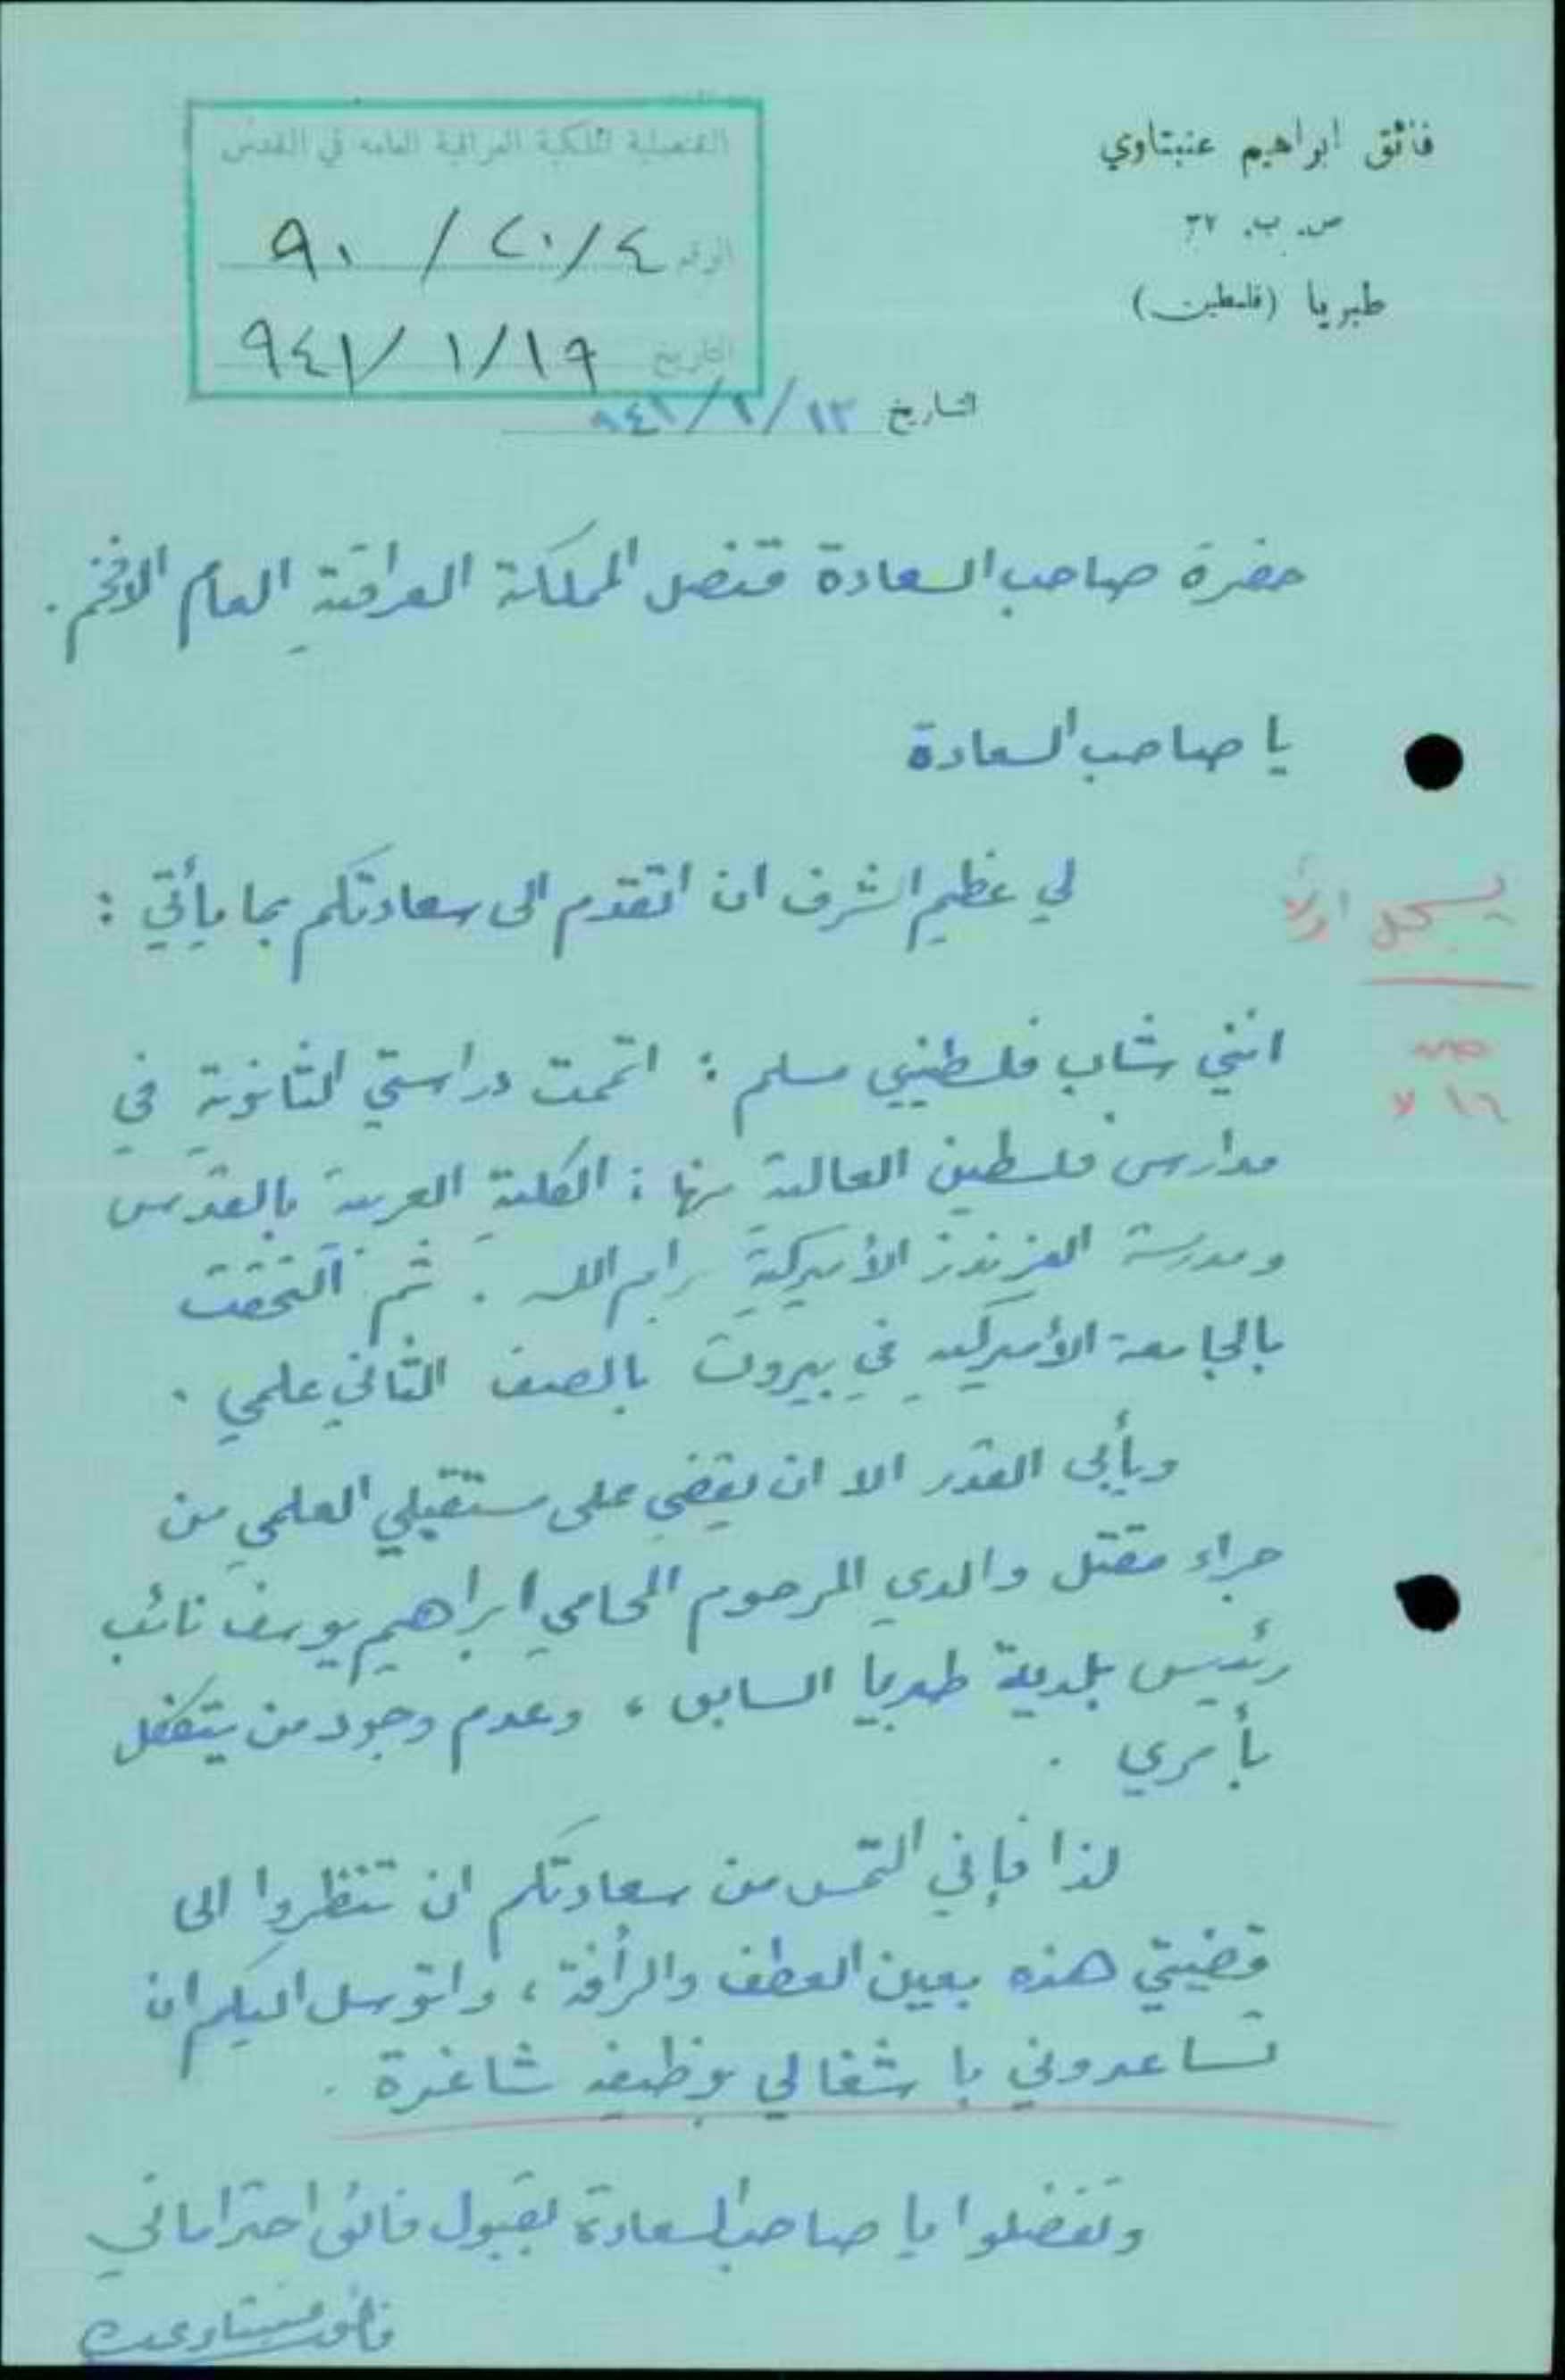 فائق ابراهيم عنبتاوي
ص. ب. ٣٧
طبريا (فلسطين)
القنصلية الملكية العراقية العامة في القدس
الرقم ٤/٢٠/ ٩٠
التاريخ ١٩/ ١/ ٩٤١
التاريخ ١٣/ ١/ ٩٤١
حضرة صاحب السعادة قنصل المملكة العراقية العام الافخم.
يا صاحب السعادة
لي عظيم الشرف ان اتقدم الى سعادتكم بما يأتي :
يسجل اولاً
انني شاب فلسطيني مسلم : اتممت دراستي الثانوية في
مدارس فلسطين العالية منها : الكلية العربية بالقدس
ومدرسة الفرندز الأميركية برام الله . ثم التحقت
بالجامعة الأميركية في بيروت بالصف الثاني علمي .
ويأبى القدر الا ان يقضي على مستقبلي العلمي من
جراء مقتل والدي المرحوم المحامي ابراهيم يوسف نائب
رئيس بلدية طبريا السابق ، وعدم وجود من يتكفل
بأمري .
لذا فإني التمس من سعادتكم ان تنظروا الى
قضيتي هذه بعين العطف والرأفة ، واتوسل اليكم ان
تساعدوني باشغالي بوظيفة شاغرة .
وتفضلوا يا صاحب السعادة بقبول فائق احتراماتي
فائق عنبتاوي